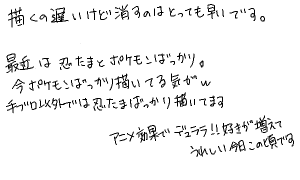 描くの遅いけど消すのはとっても早いです。
最近は忍たまとポケモンばっかり。
今ポケモンばっか描いてる気がw
手ブロ以外では忍たまばっかり描いてます
アニメ効果でデュララ!!好きが増えて
うれしい今日この頃です